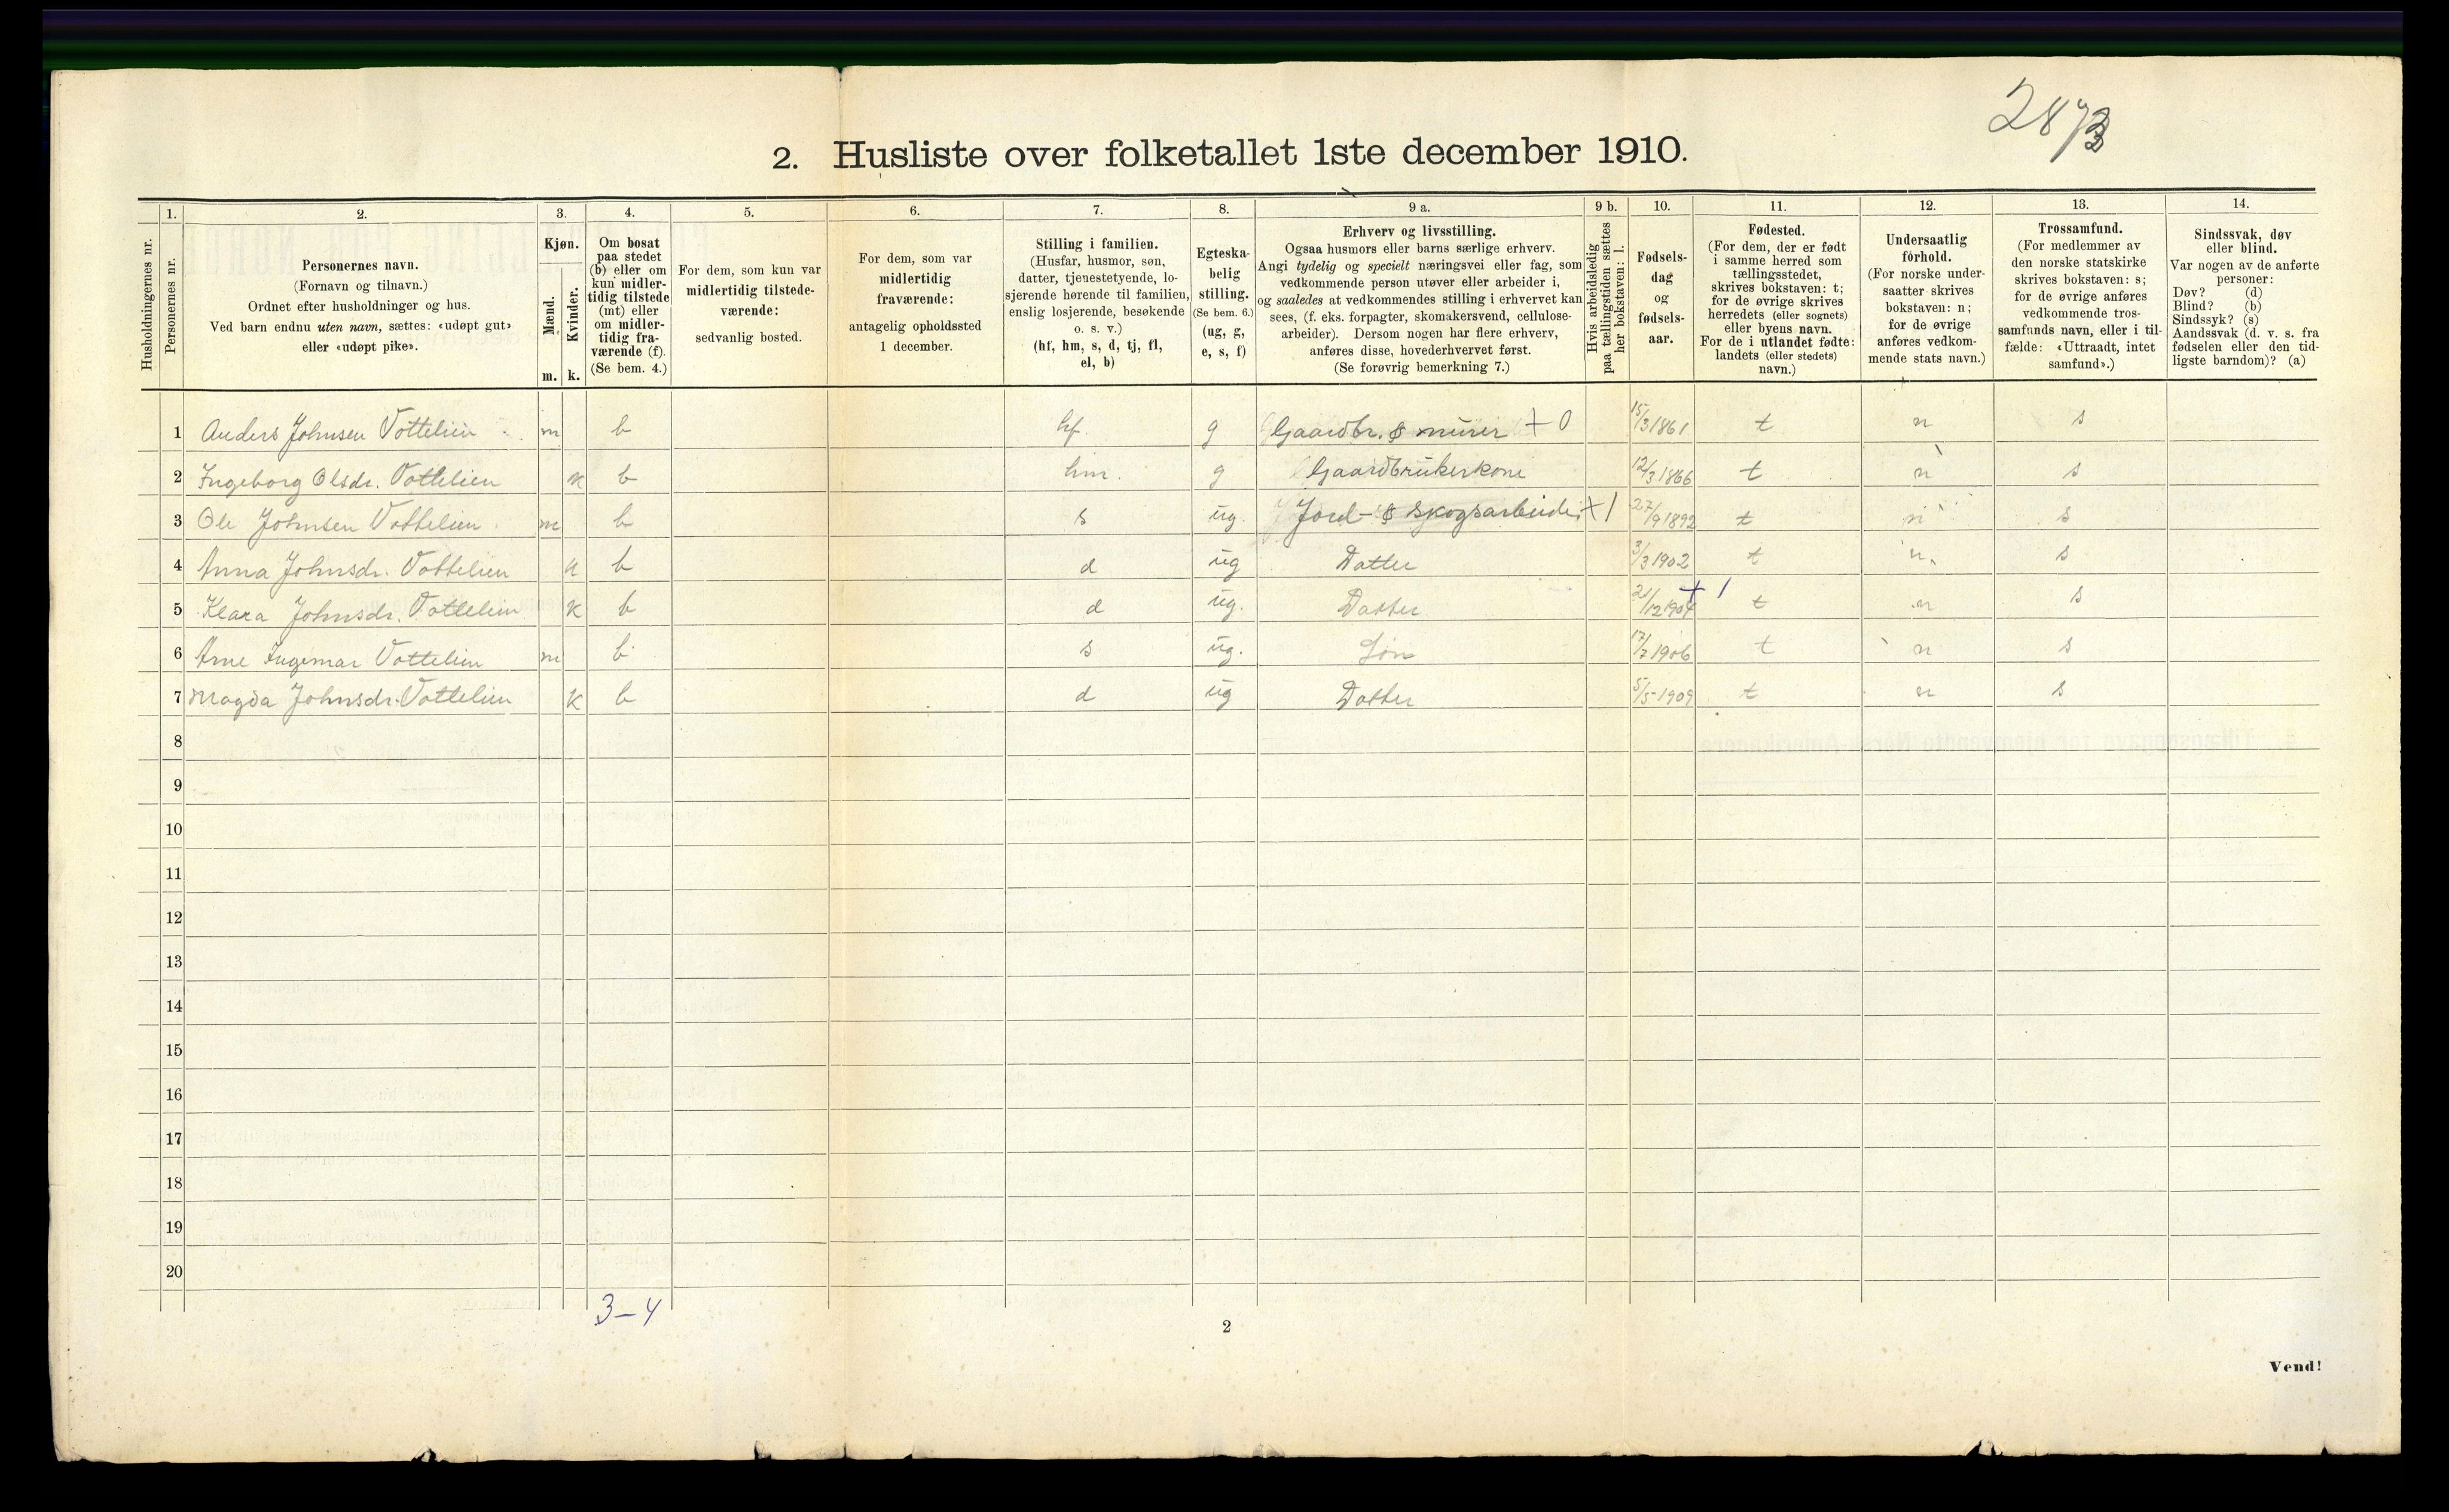 2873
2. Husliste over folketallet 1ste december 1910.
Husholdningernes nr.
1. Personernes nr.
2. Personernes navn.
(Fornavn og tilnavn.)
Ordnet efter husholdninger og hus.
Ved barn endnu uten navn, sættes: «udøpt gut»
eller «udøpt pike».
3. Kjøn.
Mænd. m.
Kvinder. k.
4. Om bosat
paa stedet
(b) eller om
kun midler-
tidig tilstede
(mt) eller
om midler-
tidig fra-
værende (f).
(Se bem. 4.)
5. For dem, som kun var
midlertidig tilstede-
værende:
sedvanlig bosted.
6. For dem, som var
midlertidig
fraværende:
antagelig opholdssted
1 december.
7. Stilling i familien.
(Husfar, husmor, søn,
datter, tjenestetyende, lo-
sjerende hørende til familien,
enslig losjerende, besøkende
o. s. v.)
(hf, hm, s, d, tj, fl,
el, b)
8. Egteska-
belig
stilling.
(Se bem. 6.)
(ug, g,
e, s, f)
9 a. Erhverv og livsstilling.
Ogsaa husmors eller barns særlige erhverv.
Angi tydelig og specielt næringsvei eller fag, som
vedkommende person utøver eller arbeider i,
og saaledes at vedkommendes stilling i erhvervet kan
sees, (f. eks. forpagter, skomakersvend, cellulose-
arbeider). Dersom nogen har flere erhverv,
anføres disse, hovederhvervet først.
(Se forøvrig bemerkning 7.)
9 b. Hvis arbeidsledig
paa tællingstiden sættes
her bokstaven: l.
10. Fødsels-
dag
og
fødsels-
aar.
11. Fødested.
(For dem, der er født
i samme herred som
tællingsstedet,
skrives bokstaven: t;
for de øvrige skrives
herredets (eller sognets)
eller byens navn.
For de i utlandet fødte:
landets (eller stedets)
navn.)
12. Undersaatlig
forhold.
(For norske under-
saatter skrives
bokstaven: n;
for de øvrige
anføres vedkom-
mende stats navn.)
13. Trossamfund.
(For medlemmer av
den norske statskirke
skrives bokstaven: s;
for de øvrige anføres
vedkommende tros-
samfunds navn, eller i til-
fælde: «Uttraadt, intet
samfund».)
14. Sindssvak, døv
eller blind.
Var nogen av de anførte
personer:
Døv? (d)
Blind? (b)
Sindssyk? (s)
Aandssvak (d. v. s. fra
fødselen eller den tid-
ligste barndom)? (a)
1 Anders Johnsen Vottelien m b hf. g Gaardbr. & murer + 0 15/3 1861 t n s
2 Ingeborg Olsdr. Vottelien k b hm. g Gaardbrukerkone 12/3 1866 t n s
3 Ole Johnsen Vottelien m b s ug. Jord- & skogsarbeider + 1 27/9 1892 t n s
4 Anna Johnsdr. Vottelien k b d ug Datter 3/3 1902 t n s
5 Klara Johnsdr. Vottelien k b d ug. Datter 21/12 1904 + 1 t n s
6 Arne Ingemar Vottelien m b s ug. Søn 17/7 1906 t n s
7 Magda Johnsdr. Vottelien k b d ug Datter 5/5 1909 t n s
8
9
10
11
12
13
14
15
16
17
18
19
20
3-4
2
Vend!